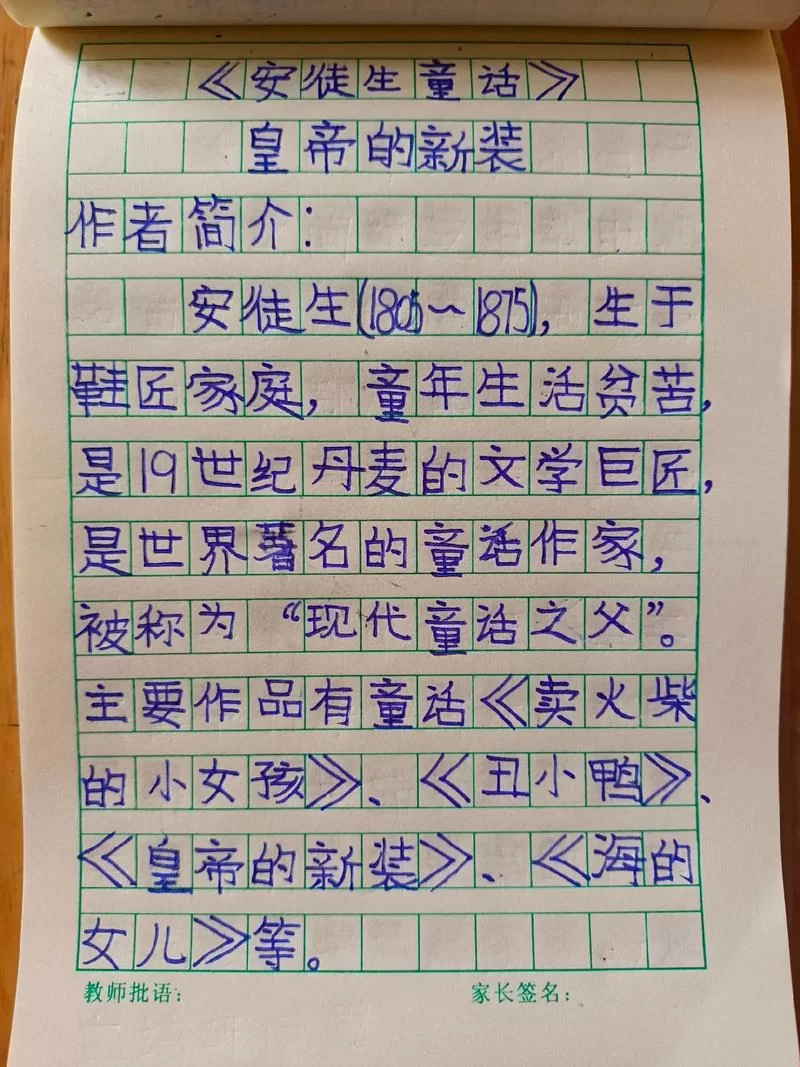 《安徒生童话》
皇帝的新装
作者简介：
安徒生(1805～1875)，生于
鞋匠家庭，童年生活贫苦，
是19世纪丹麦的文学巨匠，
是世界著名的童话作家，
被称为“现代童话之父”。
主要作品有童话《卖火柴
的小女孩》、《丑小鸭》、
《皇帝的新装》、《海的
女儿》等。
教师批语： 家长签名：